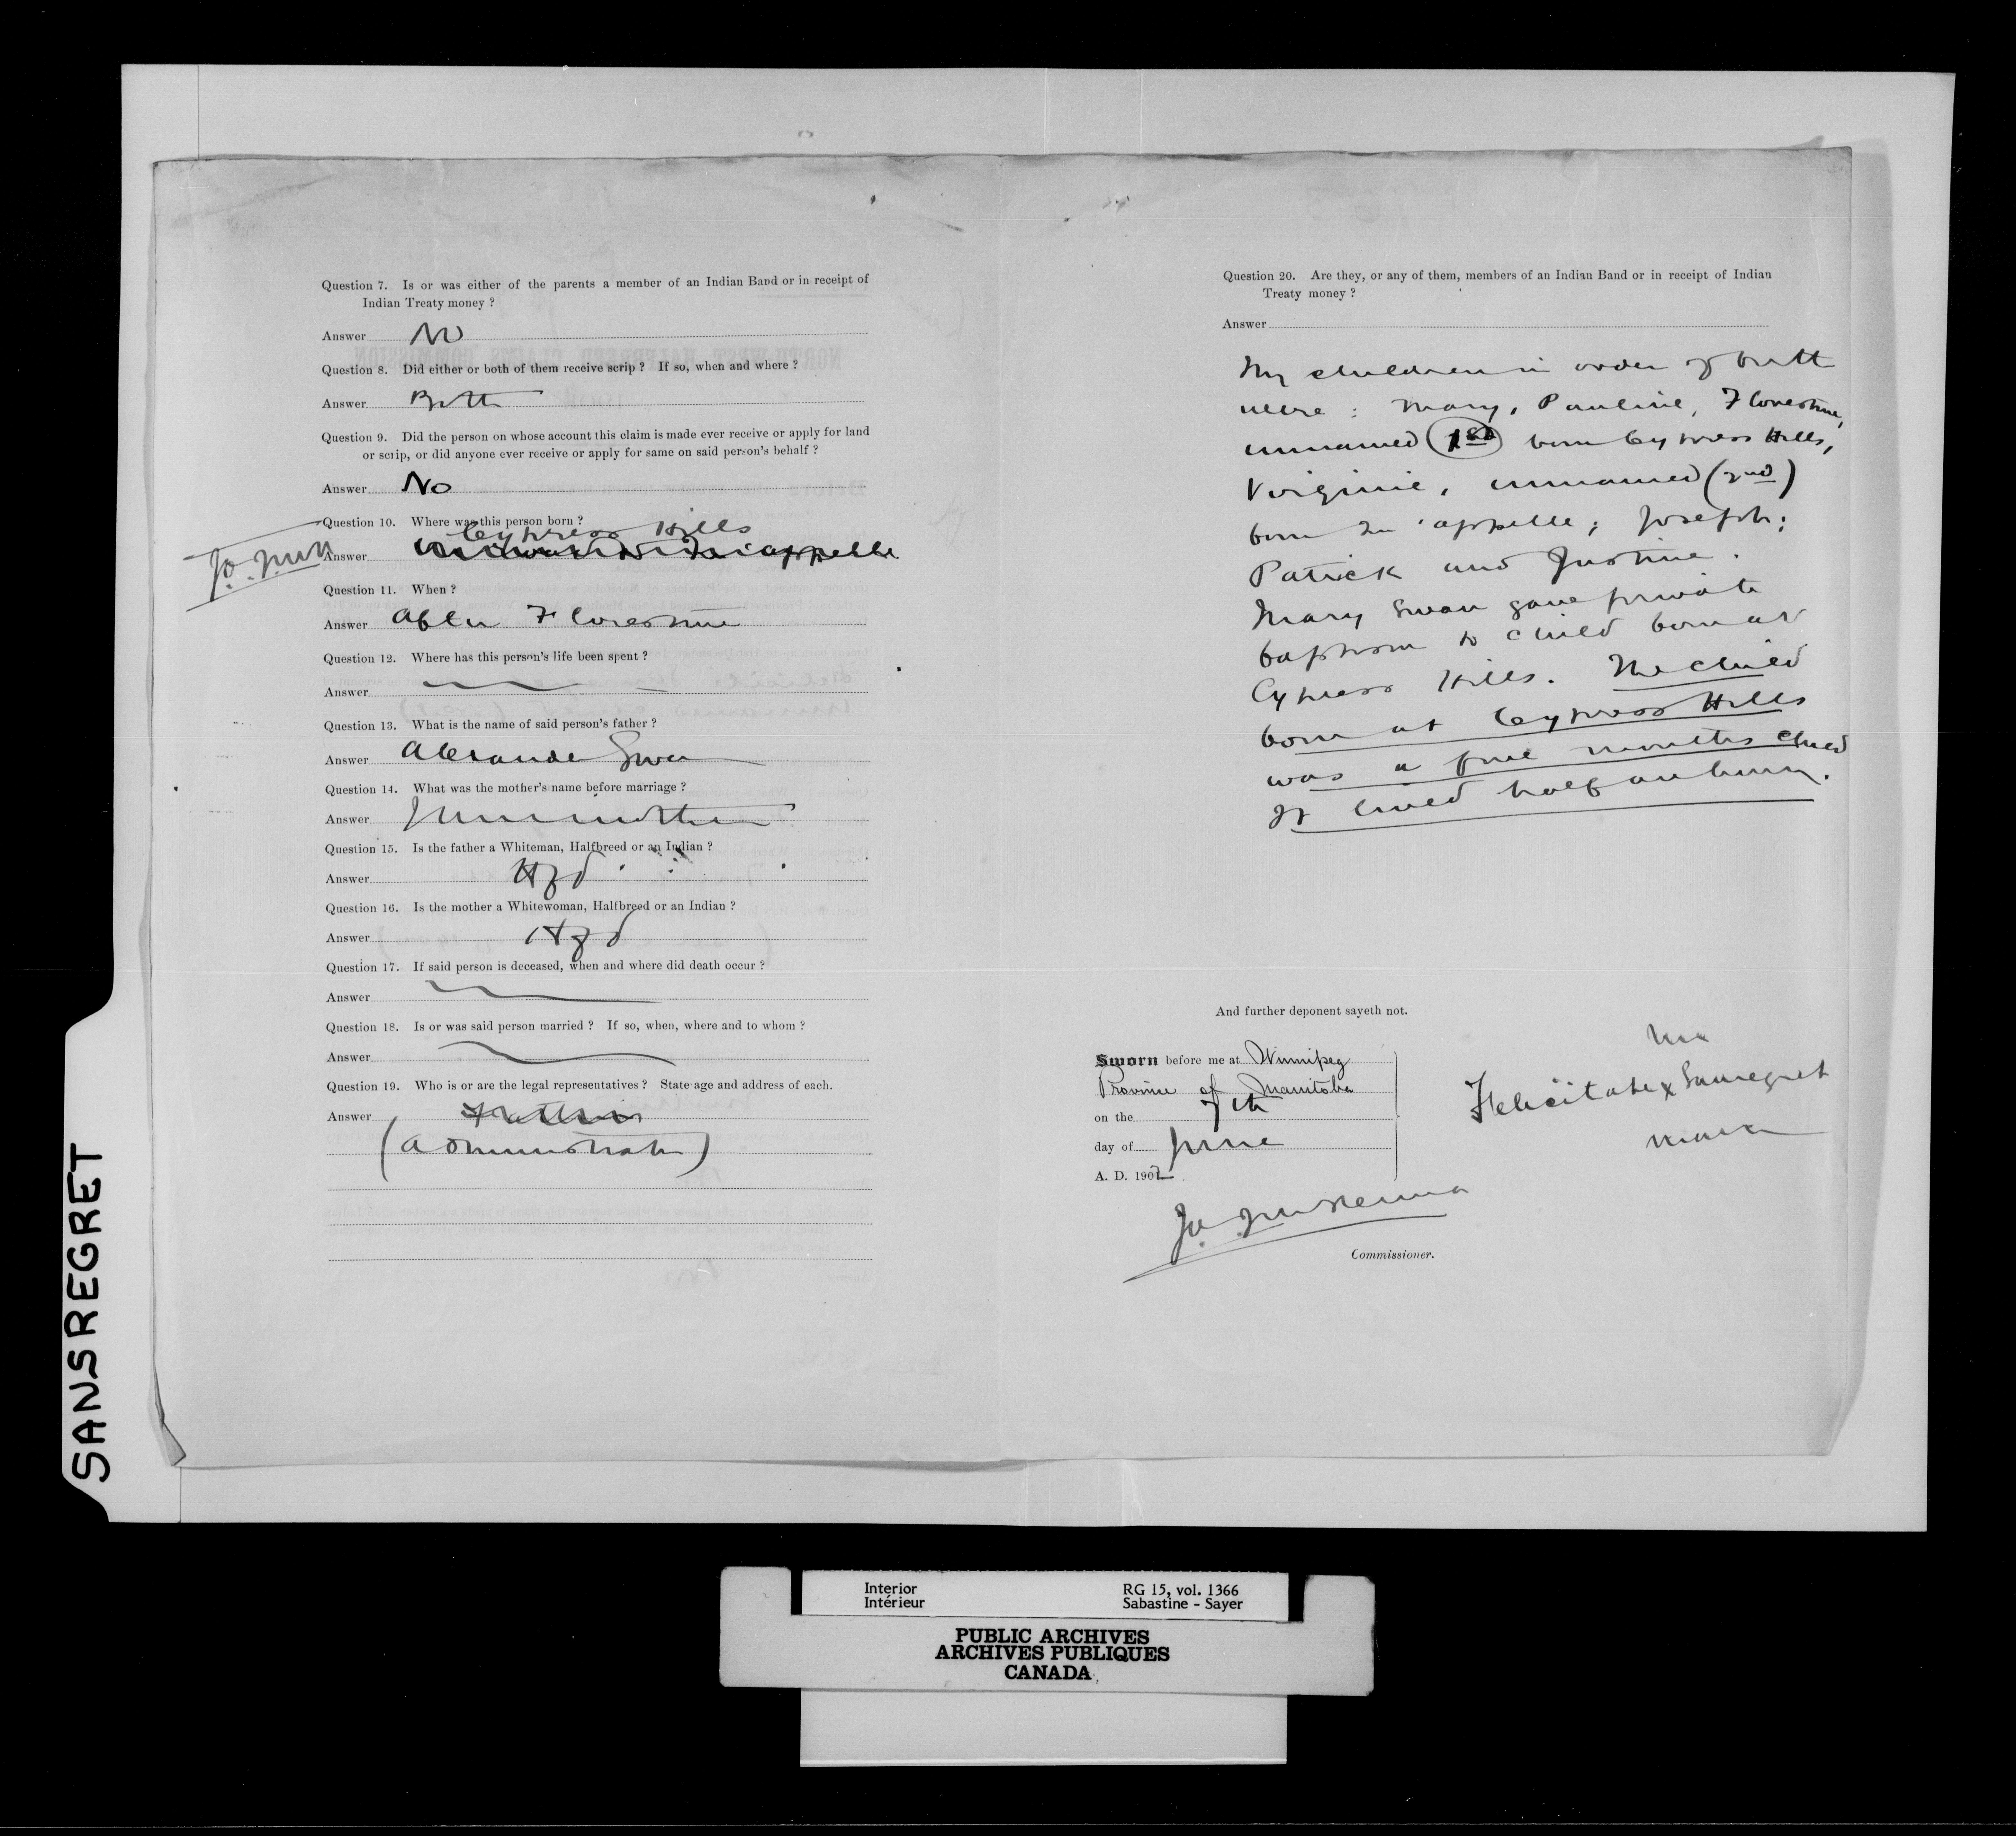 Question 7. Is or was either of the parents a member of an Indian Band or in receipt of
Indian Treaty money ?
Answer No
Question 8. Did either or both of them receive scrip ? If so, when and where ?
Answer Both
Question 9. Did the person on whose account this claim is made ever receive or apply for land
or scrip, or did anyone ever receive or apply for same on said person's behalf ?
Answer No
Question 10. Where was this person born ?
Cypress Hills
Answer Qu'appelle
Question 11. When ?
Answer After Florestine
Question 12. Where has this person's life been spent ?
Answer
Question 13. What is the name of said person's father ?
Answer Alexande Swan
Question 14. What was the mother's name before marriage ?
Answer
Question 15. Is the father a Whiteman, Halfbreed or an Indian ?
Answer Hfd
Question 16. Is the mother a Whitewoman, Halfbreed or an Indian ?
Answer Hfd
Question 17. If said person is deceased, when and where did death occur ?
Answer
Question 18. Is or was said person married ? If so, when, where and to whom ?
Answer
Question 19. Who is or are the legal representatives ? State age and address of each.
Answer Father
(Administrator)
Question 20. Are they, or any of them, members of an Indian Band or in receipt of Indian
Treaty money ?
Answer
My children in order of birth
were : Mary, Pauline, Florestine,
unnamed (1st) born Cypress Hills,
Virginie, unnamed (2nd)
born Qu'appelle ; Joseph ;
Patrick and Justine.
Mary Swan gave private
baptism to child born at
Cypress Hills. The child
born at Cypress Hills
was a five months child
It lived half an hour.
And further deponent sayeth not.
Sworn before me at Winnipeg
Province of Manitoba
on the 7th
day of June
A. D. 1902
Commissioner.
her
Felicitate x Sansregret
mark
SANSREGRET
Interior
Intérieur
RG 15, vol. 1366
Sabastine - Sayer
PUBLIC ARCHIVES
ARCHIVES PUBLIQUES
CANADA